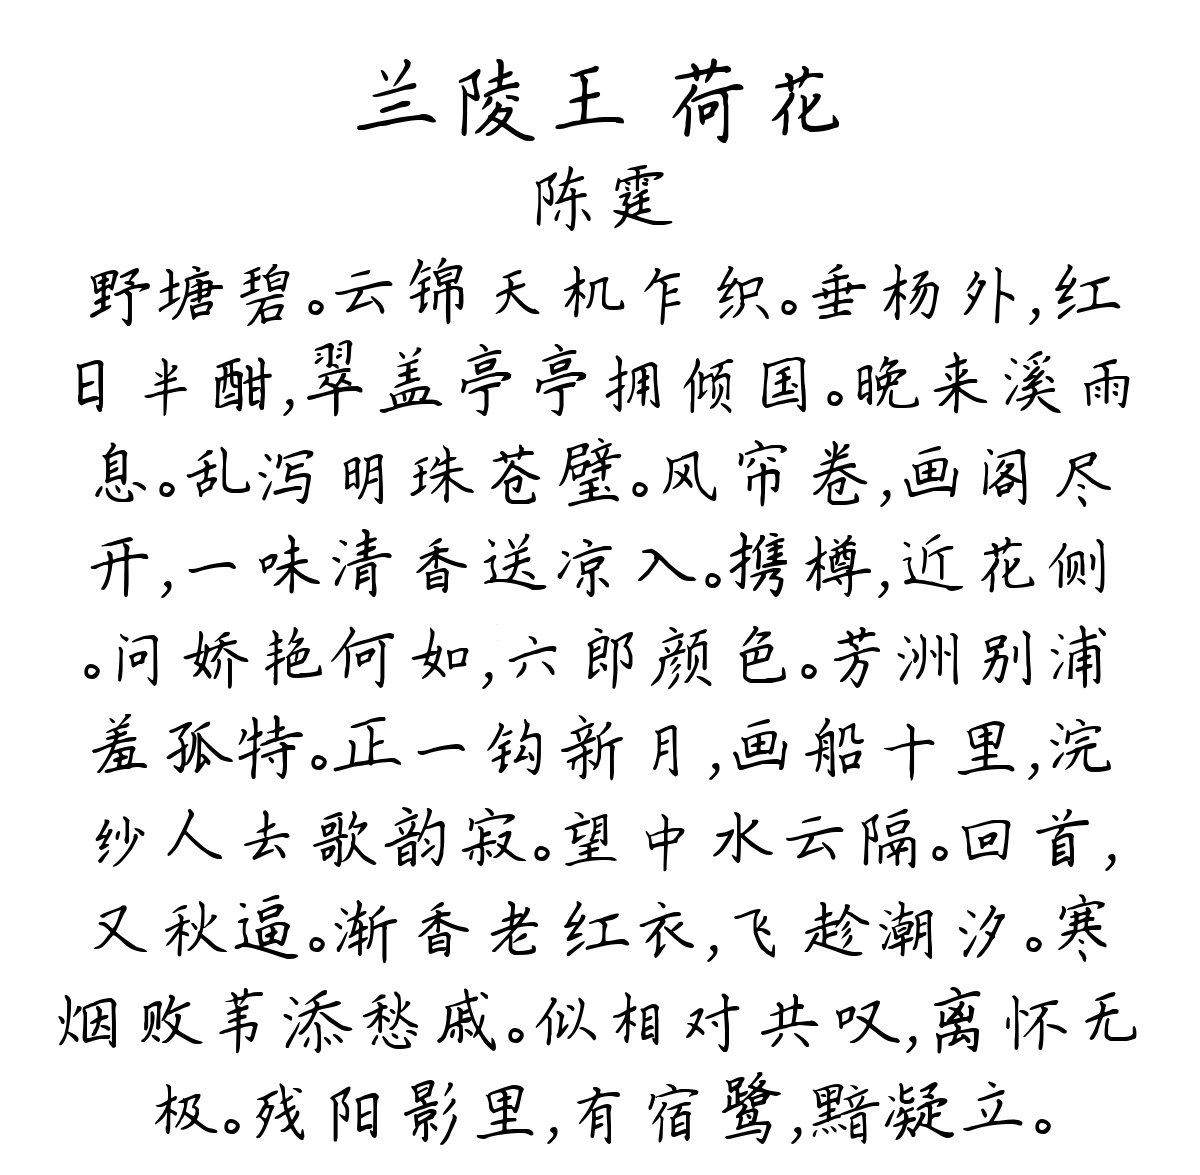 兰陵王 荷花
陈霆
野塘碧。云锦天机乍织。垂杨外,红
日半酣,翠盖亭亭拥倾国。晚来溪雨
息。乱泻明珠苍璧。风帘卷,画阁尽
开,一味清香送凉入。携樽,近花侧
。问娇艳何如,六郎颜色。芳洲别浦
羞孤特。正一钩新月,画船十里,浣
纱人去歌韵寂。望中水云隔。回首,
又秋逼。渐香老红衣,飞趁潮汐。寒
烟败苇添愁戚。似相对共叹,离怀无
极。残阳影里,有宿鹭,黯凝立。